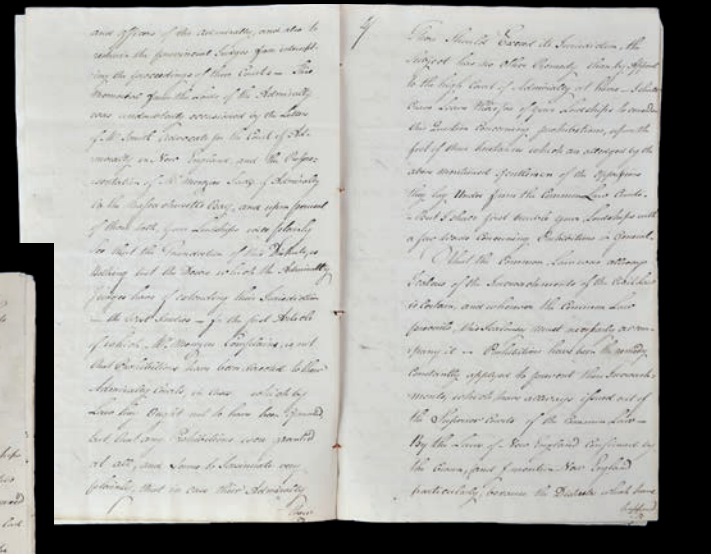 and officers of the Admiralty, and also to
restrain the provincial Judges from interrupt-
ing the proceedings of these Courts — This
Memorial from the Lords of the Admiralty
was undoubtedly occasioned by the Letter
of Mr Smith Advocate for the Court of Ad-
miralty in New England, and the Repre-
sentation of Mr Menzies Judge of Admiralty
in the Massachusetts Bay, and upon perusal
of them both, your Lordships will plainly
see that the Foundation of this Dispute, is
nothing but the Desire which the Admiralty
Judges have of extending their Jurisdiction
in the West Indies — for the first Article
of which Mr Menzies Complains, is not
that Prohibitions have been directed to their
Admiralty Courts, in cases which by
Law they Ought not to have been Granted,
but that any Prohibitions were granted
at all, and seems to Insinuate very
plainly, that in case their Admiralty
4/
Should Exceed its Jurisdiction, the
Subject has no other Remedy than by Appeal
to the high Court of Admiralty at home — I shall
leave of your Lordships to consider
this Question Concerning prohibitions, upon the
foot of those Instances which are alledged by the
above mentioned Gentlemen of the
they lay Under from the Common Law Courts.
— But I shall first trouble your Lordships with
a few Words Concerning Prohibitions in General.
That the Common Law was allways
Jealous of the Incroachments of the
is Certain, and wherever the Common Law
prevails, this Jealousy must necessarily accom-
pany it — Prohibitions have been the remedy
Constantly applyed to prevent these Incroach-
ments, which have allways issued out of
the Superior Courts of the Common Law —
By the Laws of New England Confirmed by
the Crown, (and I mention New England
particularly, because the Disputes which have
happened